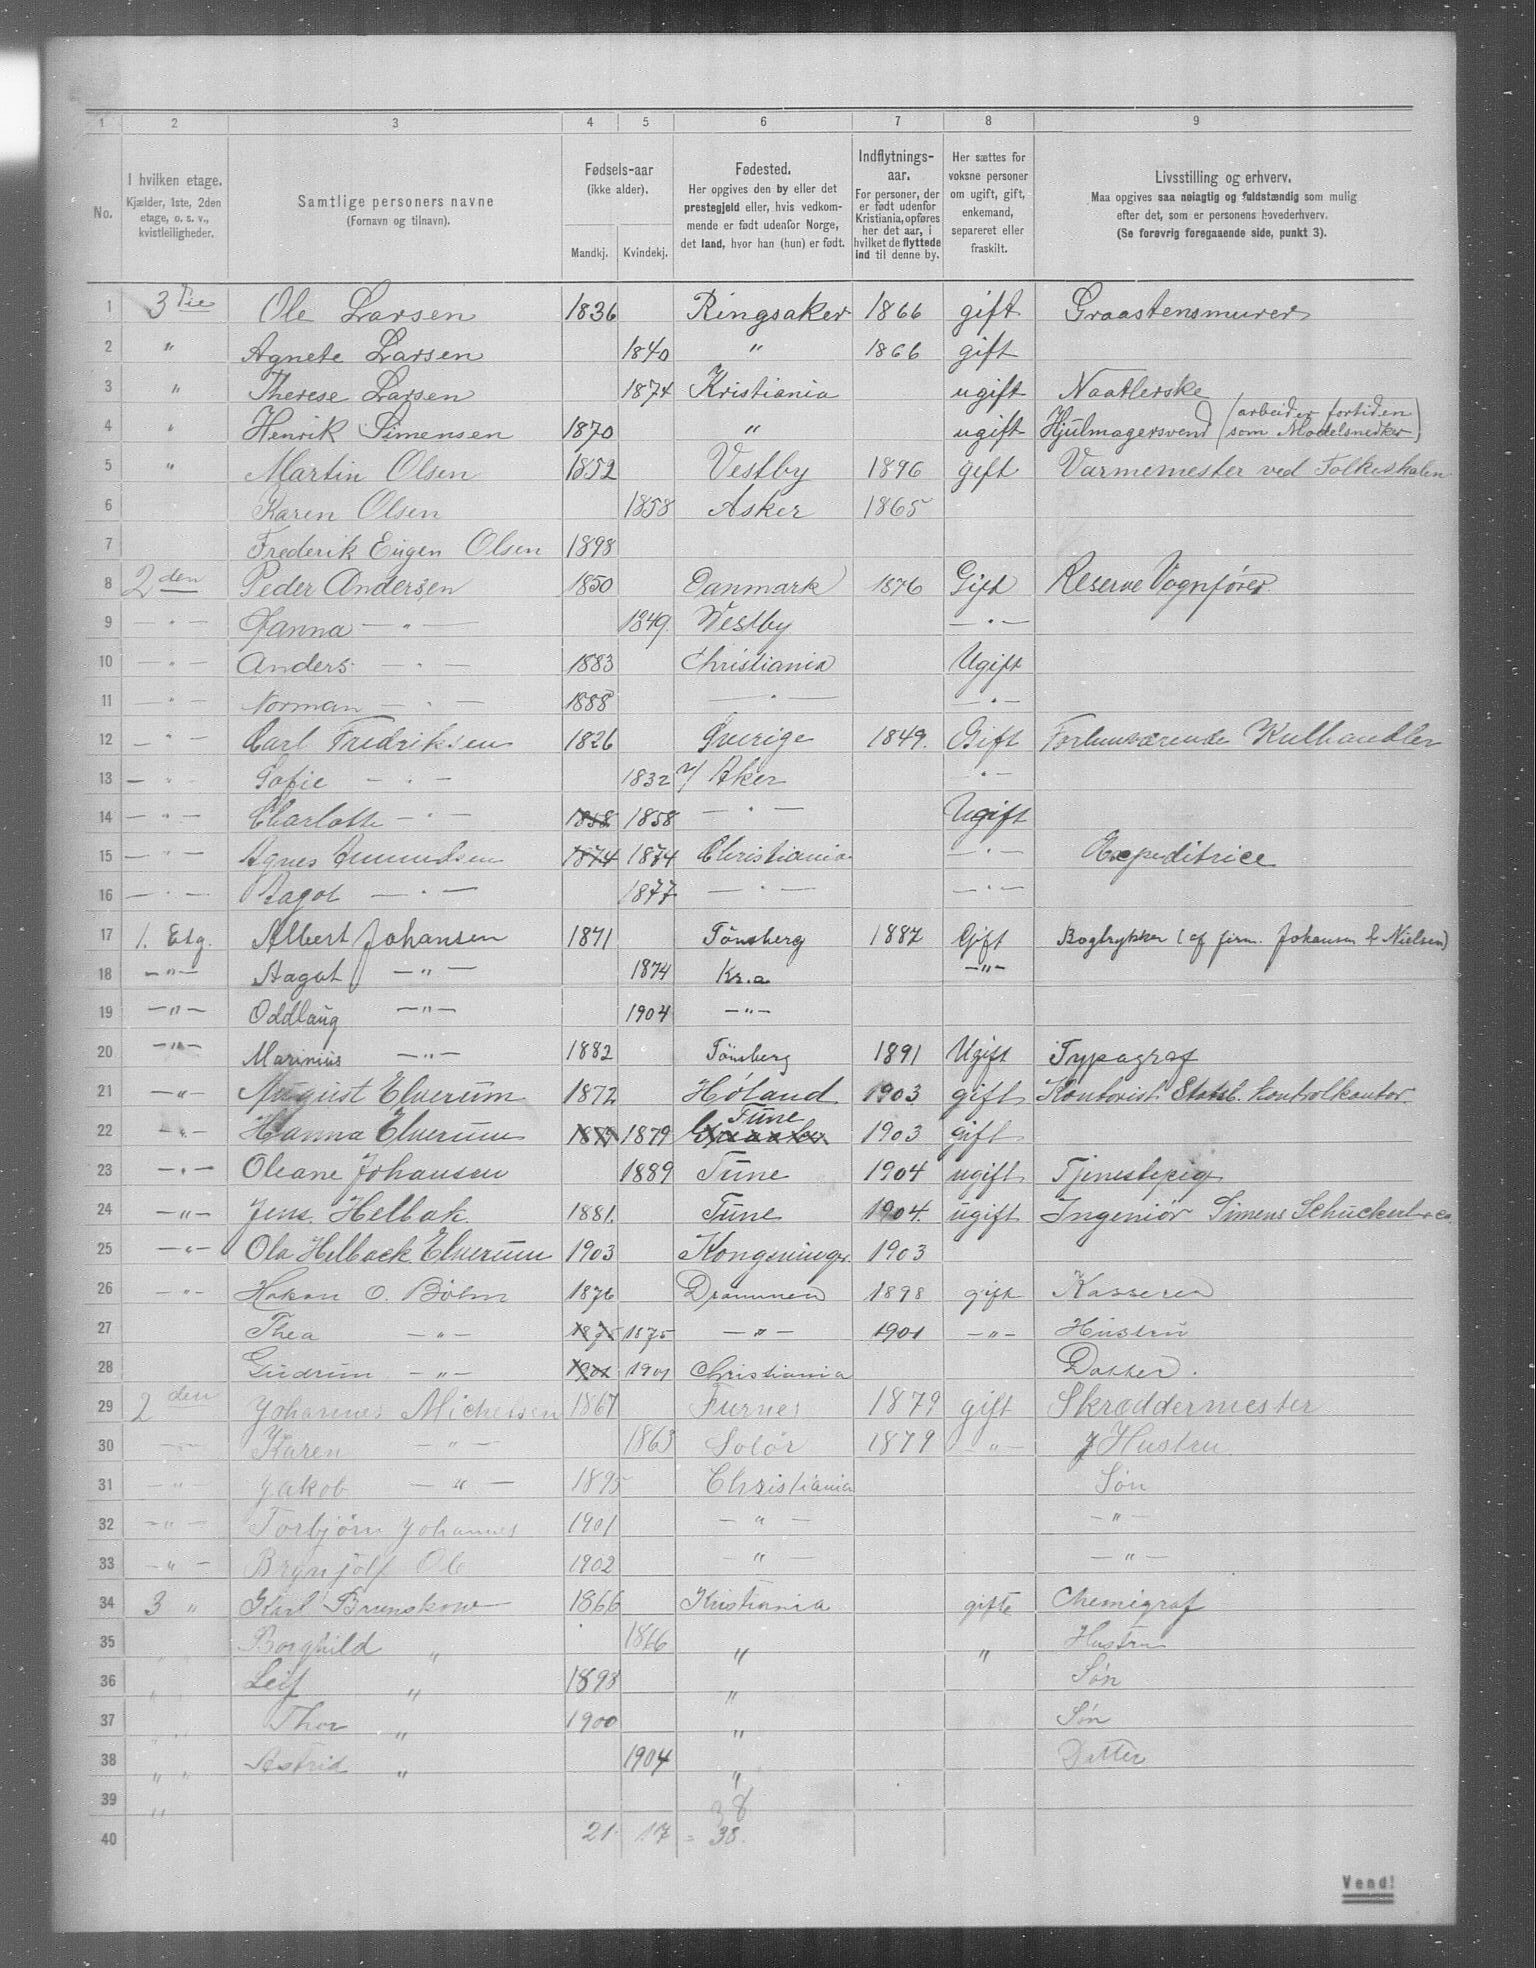 1 2 3 4 5 6 7 8 9
No.
I hvilken etage.
Kjælder, 1ste, 2den
etage, o. s. v.,
kvistleiligheder.
Samtlige personers navne
(Fornavn og tilnavn).
Fødsels-aar
(ikke alder).
Mandkj. Kvindekj.
Fødested.
Her opgives den by eller det
prestegjeld eller, hvis vedkom-
mende er født udenfor Norge,
det land, hvor han (hun) er født.
Indflytnings-
aar.
For personer, der
er født udenfor
Kristiania, opføres
her det aar, i
hvilket de flyttede
ind til denne by.
Her sættes for
voksne personer
om ugift, gift,
enkemand,
separeret eller
fraskilt.
Livsstilling og erhverv.
Maa opgives saa nøiagtig og fuldstændig som mulig
efter det, som er personens hovederhverv.
(Se forøvrig foregaaende side, punkt 3).
1 3 die Ole Larsen 1836 Ringsaker 1866 gift Graastensmurer
2 " Agnete Larsen 1840 " 1866 gift
3 " Therese Larsen 1874 Kristiania ugift Naatlerske
4 " Henrik Simensen 1870 " ugift Hjulmagersvend (arbeider fortiden som Modelsnedker)
5 " Martin Olsen 1852 Vestby 1896 gift Varmemester ved Folkeskolen
6 Karen Olsen 1858 Asker 1865
7 Frederik Eugen Olsen 1898
8 2 den Peder Andersen 1850 Danmark 1876 Gift Reserve Vognfører
9 — " — Hanna — " — 1849. Vestby — " —
10 — " — Anders — " — 1883 Christiania Ugift
11 — " — Norman — " — 1888 — " — — " —
12 — " — Carl Fredriksen 1826 Sverige 1849. Gift Forhenværende Kulhandler
13 — " Sofie — " — 1832 V/ Aker — " —
14 — " — Charlotte — " — 1858 1858 — " — Ugift
15 — " — Agnes Amundsen 1874 1874 Christiania — " — Expeditrice
16 — " — Aagot — " — 1877 — " — — " —
17 1. Etg. Albert Johansen 1871 Tönsberg 1887 Gift Bogtrykker (af firm. Johansen & Nielsen)
18 — " — Aagot — " — 1874 Kr.a — " —
19 — " — Oddlaug — " — 1904 — " —
20 — " — Marinius — " — 1882 Tönsberg 1891 Ugift Typograf
21 — " — August Elverum 1872 Höland 1903 gift Kontorist Statsb. kontrolkontor
22 — " — Hanna Elverum 1879 Tune 1903 gift
23 — " — Oleane Johansen 1889 Tune 1904 ugift Tjenestepig
24 — " — Jens Helbak 1881. Tune 1904. ugift Ingeniör Simens Schuckert & co.
25 — " — Ola Helback Elverum 1903 Kongsvinger 1903
26 — " — Hakon O. Böhm 1876 Drammen 1898 gift Kasserer
27 Thea — " — 1875 1875 — " — 1901 — " — Hustru
28 Gudrun — " — 1901 1901 Christiania Datter.
29 2 den Johannes Michelsen 1867 Furnes 1879 gift Skræddermester
30 — " — Karen — " — 1863 Solör 1879 — " — Hustru
31 — " — Jakob — " — 1895 Christiania Søn
32 — " — Torbjörn Johannes 1901 — " — — " —
33 — " — Brynjolf Ole 1902 — " — — " —
34 3 " Karl Brunskow 1866 Kristiania gifte Chemigraf
35 " Borghild " 1866 " " Hustru
36 " Leif " 1898 " Søn
37 " " Thor " 1900 " Søn
38 " " Astrid " 1904 " Datter
39 " 38
40 21. 17 = 38.
Vend!